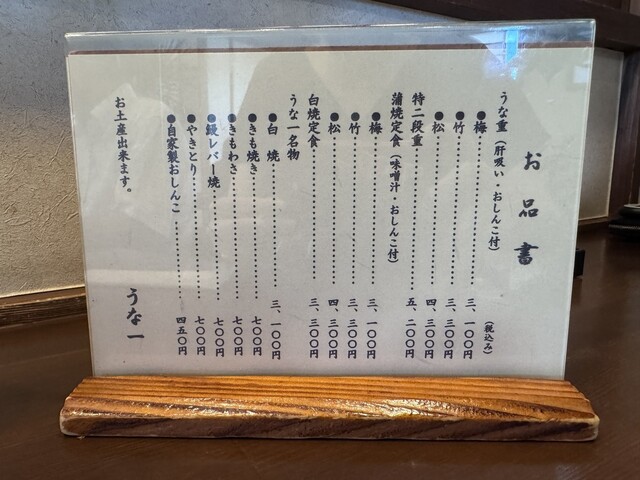 お品書
うな重(肝吸い・おしんこ付) (税込み)
●梅……………………三、一〇〇円
●竹……………………三、三〇〇円
●松……………………四、三〇〇円
特二段重………………五、二〇〇円
蒲焼定食(味噌汁・おしんこ付)
●梅……………………三、一〇〇円
●竹……………………三、三〇〇円
●松……………………四、三〇〇円
白焼定食………………三、三〇〇円
うな一名物
●白焼…………………三、一〇〇円
●きも焼き……………七〇〇円
●きもわさ……………七〇〇円
●鰻レバー焼…………七〇〇円
●やきとり……………七〇〇円
●自家製おしんこ……四五〇円
お土産出来ます。
うな一